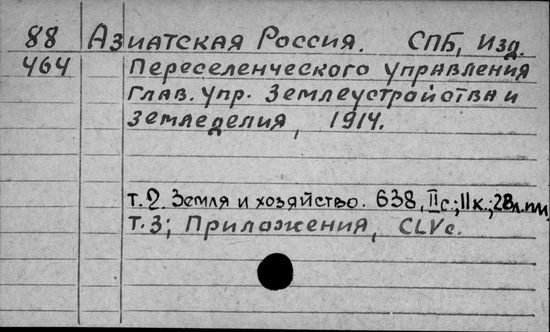 88 Азиатская Россия. СПБ, Изд.
464 Переселенческого управления
Глав. упр. Землеустройства и
Земледелия, 1914.
т.2. Земля и хозяйство. 638, II с.; 11 к.; 28 л.илл.
Т.3; Приложения, CLVс.